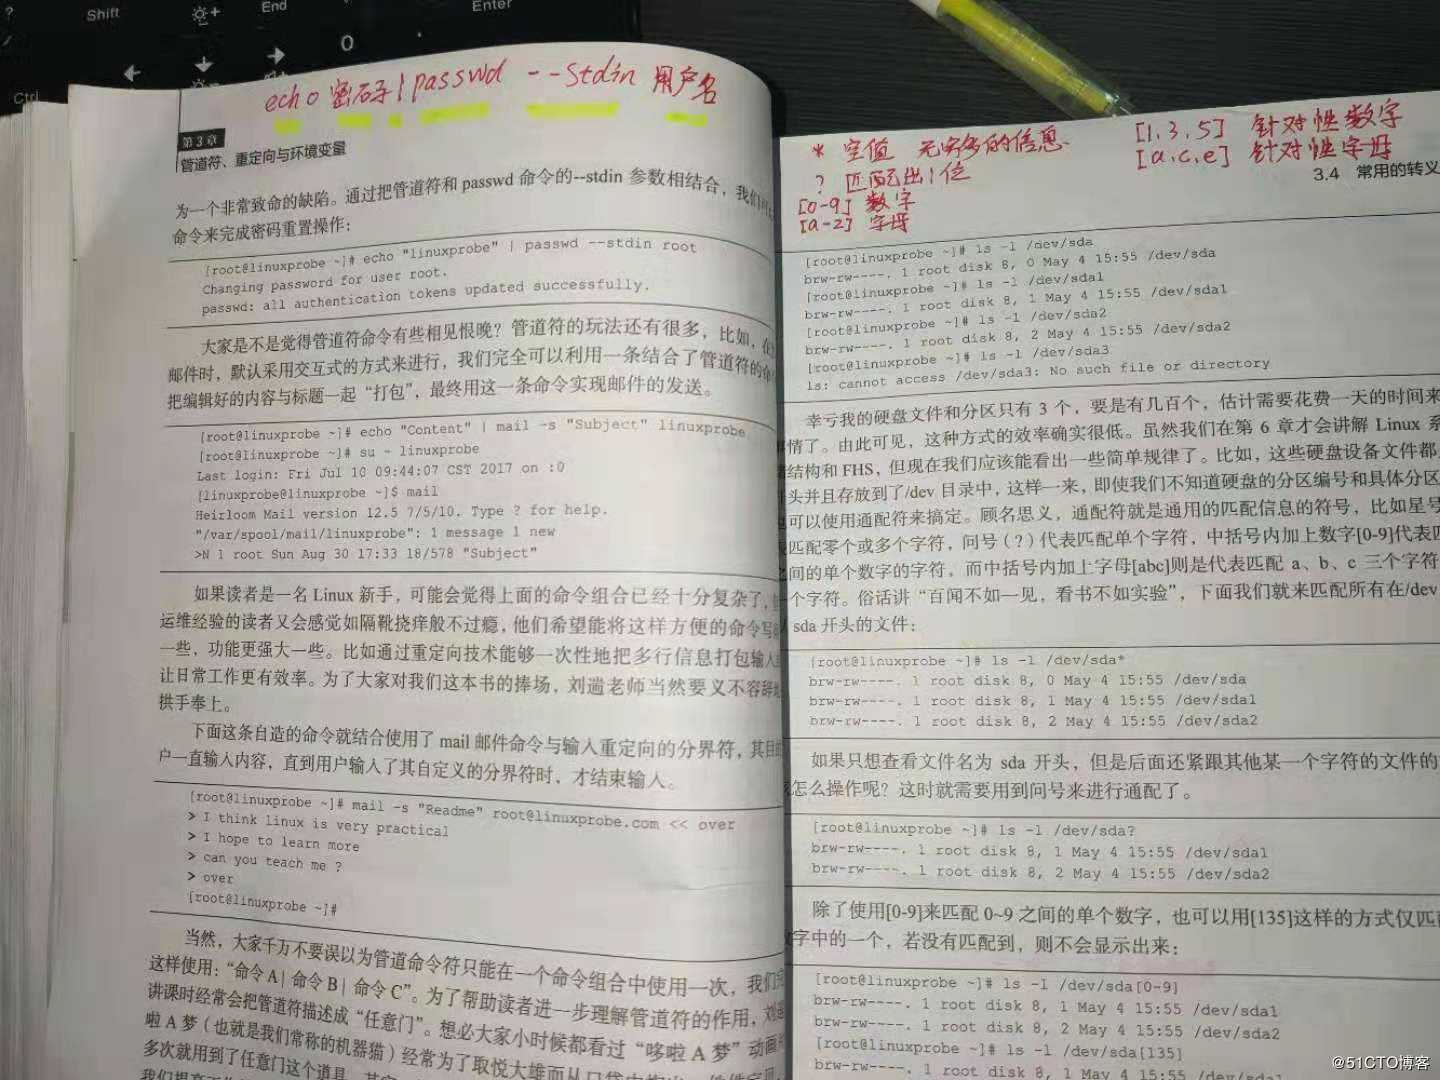 Shift
End
Enter
Ctrl
echo 密码 | passwd --stdin 用户名
第 3 章
管道符、重定向与环境变量
为一个非常致命的缺陷。通过把管道符和 passwd 命令的--stdin 参数相结合，我们
命令来完成密码重置操作：
[root@linuxprobe ~]# echo "linuxprobe" | passwd --stdin root
Changing password for user root.
passwd: all authentication tokens updated successfully.
大家是不是觉得管道符命令有些相见恨晚？管道符的玩法还有很多，比如，在
邮件时，默认采用交互式的方式来进行，我们完全可以利用一条结合了管道符的命
把编辑好的内容与标题一起“打包”，最终用这一条命令实现邮件的发送。
[root@linuxprobe ~]# echo "Content" | mail -s "Subject" linuxprobe
[root@linuxprobe ~]# su - linuxprobe
Last login: Fri Jul 10 09:44:07 CST 2017 on :0
[linuxprobe@linuxprobe ~]$ mail
Heirloom Mail version 12.5 7/5/10. Type ? for help.
"/var/spool/mail/linuxprobe": 1 message 1 new
>N 1 root Sun Aug 30 17:33 18/578 "Subject"
如果读者是一名 Linux 新手，可能会觉得上面的命令组合已经十分复杂了，
运维经验的读者又会感觉如隔靴挠痒般不过瘾，他们希望能将这样方便的命令写
一些，功能更强大一些。比如通过重定向技术能够一次性地把多行信息打包输入
让日常工作更有效率。为了大家对我们这本书的捧场，刘遄老师当然要义不容辞
拱手奉上。
下面这条自造的命令就结合使用了 mail 邮件命令与输入重定向的分界符，其目
户一直输入内容，直到用户输入了其自定义的分界符时，才结束输入。
[root@linuxprobe ~]# mail -s "Readme" root@linuxprobe.com << over
> I think linux is very practical
> I hope to learn more
> can you teach me ?
> over
[root@linuxprobe ~]#
当然，大家千万不要误以为管道命令符只能在一个命令组合中使用一次，我们
这样使用：“命令 A | 命令 B | 命令 C”。为了帮助读者进一步理解管道符的作用，刘遄
讲课时经常会把管道符描述成“任意门”。想必大家小时候都看过“哆啦 A 梦”动画
啦 A 梦（也就是我们常称的机器猫）经常为了取悦大雄而从口袋中
多次就用到了任意门这个道具
* 空值 无穷多的信息
? 匹配出1位
[0-9] 数字
[a-z] 字母
[1.3.5] 针对性数字
[a.c.e] 针对性字母
3.4 常用的转义
[root@linuxprobe ~]# ls -l /dev/sda
brw-rw----. 1 root disk 8, 0 May 4 15:55 /dev/sda
[root@linuxprobe ~]# ls -l /dev/sda1
brw-rw----. 1 root disk 8, 1 May 4 15:55 /dev/sda1
[root@linuxprobe ~]# ls -l /dev/sda2
brw-rw----. 1 root disk 8, 2 May 4 15:55 /dev/sda2
[root@linuxprobe ~]# ls -l /dev/sda3
ls: cannot access /dev/sda3: No such file or directory
幸亏我的硬盘文件和分区只有 3 个，要是有几百个，估计需要花费一天的时间来
情了。由此可见，这种方式的效率确实很低。虽然我们在第 6 章才会讲解 Linux 系
结构和 FHS，但现在我们应该能看出一些简单规律了。比如，这些硬盘设备文件都
头并且存放到了/dev 目录中，这样一来，即使我们不知道硬盘的分区编号和具体分区
可以使用通配符来搞定。顾名思义，通配符就是通用的匹配信息的符号，比如星号
匹配零个或多个字符，问号（?）代表匹配单个字符，中括号内加上数字[0-9]代表匹
之间的单个数字的字符，而中括号内加上字母[abc]则是代表匹配 a、b、c 三个字符
个字符。俗话讲“百闻不如一见，看书不如实验”，下面我们就来匹配所有在/dev
sda 开头的文件：
[root@linuxprobe ~]# ls -l /dev/sda*
brw-rw----. 1 root disk 8, 0 May 4 15:55 /dev/sda
brw-rw----. 1 root disk 8, 1 May 4 15:55 /dev/sda1
brw-rw----. 1 root disk 8, 2 May 4 15:55 /dev/sda2
如果只想查看文件名为 sda 开头，但是后面还紧跟其他某一个字符的文件的
怎么操作呢？这时就需要用到问号来进行通配了。
[root@linuxprobe ~]# ls -l /dev/sda?
brw-rw----. 1 root disk 8, 1 May 4 15:55 /dev/sda1
brw-rw----. 1 root disk 8, 2 May 4 15:55 /dev/sda2
除了使用[0-9]来匹配 0~9 之间的单个数字，也可以用[135]这样的方式仅匹
字中的一个，若没有匹配到，则不会显示出来：
[root@linuxprobe ~]# ls -l /dev/sda[0-9]
brw-rw----. 1 root disk 8, 1 May 4 15:55 /dev/sda1
brw-rw----. 1 root disk 8, 2 May 4 15:55 /dev/sda2
[root@linuxprobe ~]# ls -l /dev/sda[135]
brw-rw----. 1 root disk 8, 1 May 4 15:55 /dev/sda1
@51CTO博客